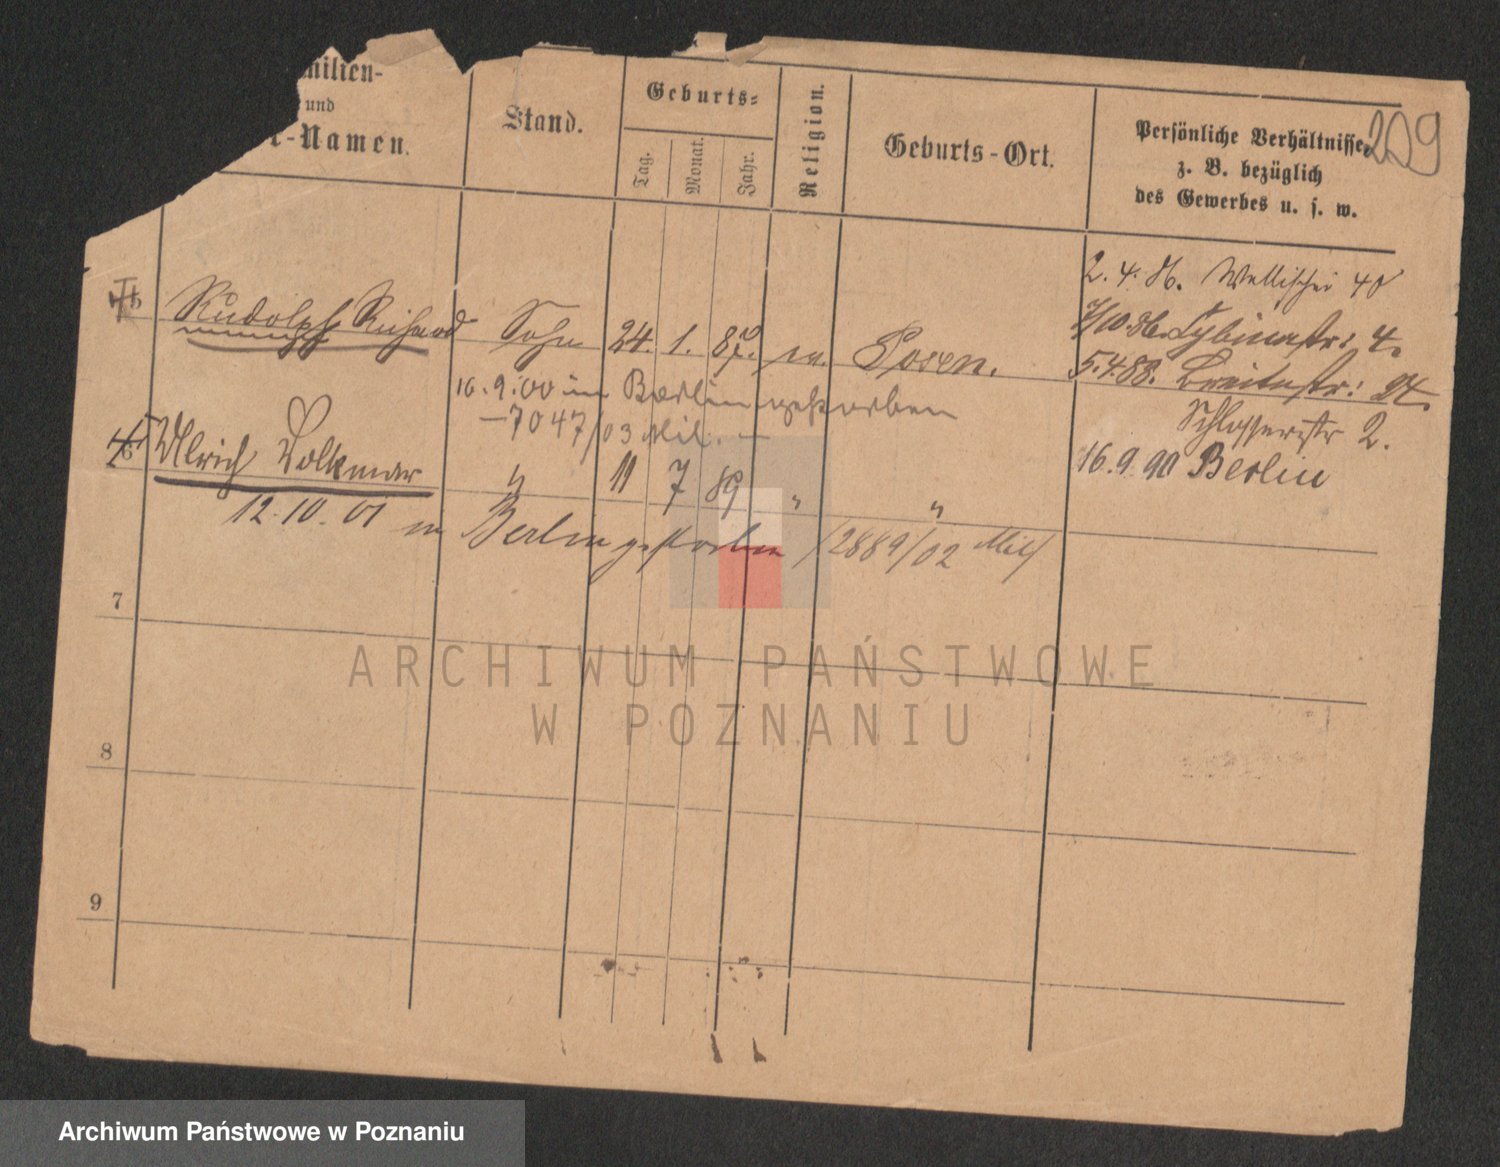 milien-
und
r-Namen.
Stand.
Geburts-
Tag.
Monat.
Jahr.
Religion.
Geburts-Ort.
Persönliche Verhältnisse
z. B. bezüglich
des Gewerbes u. s. w.
209
2. 4. 86. Wallischei 40
7/10.86. Cybinastr: 4.
5.4.88. Breitestr: 24.
Schlosserstr 2.
16.9.90 Berlin
Rudolph Richard Sohn 24. 1. 87. ev. Posen.
16.9.00 in Berlin gestorben
—7047/03 Mil. —
6 Ulrich Volkmar " 11 7 89 " "
12.10.01 in Berlin gestorben /2889/02 Mil/
7
8
9
ARCHIWUM PAŃSTWOWE
W POZNANIU
Archiwum Państwowe w Poznaniu